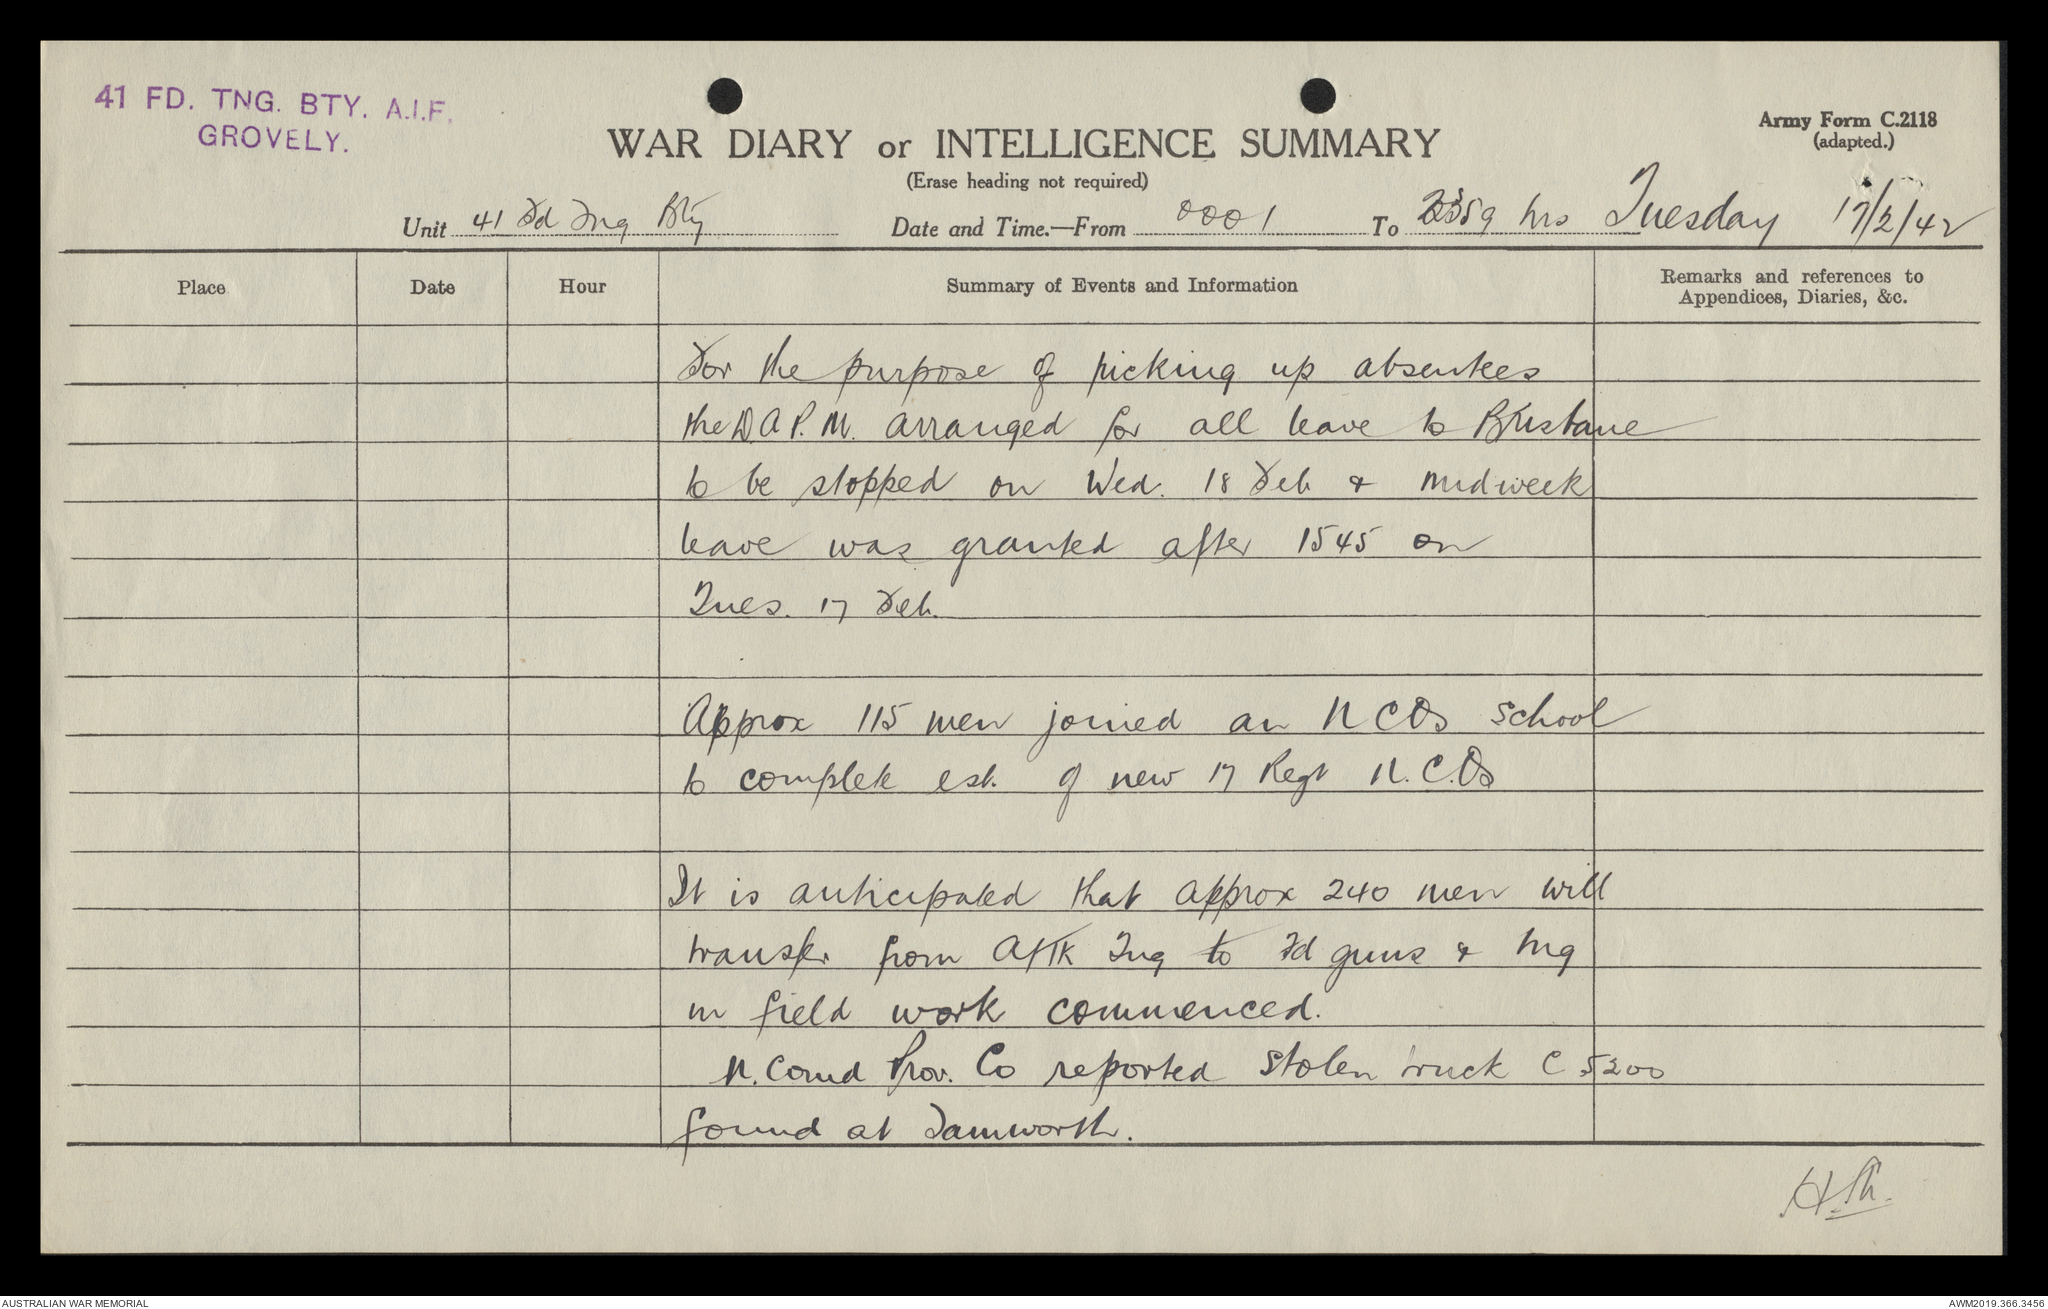 41 FD. TNG. BTY. A.I.F.
GROVELY.
Army Form C.2118
(adapted.)
WAR DIARY or INTELLIGENCE SUMMARY
(Erase heading not required)
Unit 41 Fd Tng Bty Date and Time.—From 0001 To 2359 hrs Tuesday 17/2/42
Place Date Hour Summary of Events and Information Remarks and references to Appendices, Diaries, &c.
For the purpose of picking up absentees
the D.A.P.M. arranged for all leave to Brisbane
to be stopped on Wed. 18 Feb & midweek
leave was granted after 1545 on
Tues. 17 Feb.
Approx 115 men joined an NCOs school
to complete est. of new 17 Regt N.C.Os
It is anticipated that approx 240 men will
transfer from A/TK Tng to Fd guns & tng
in field work commenced.
N. Comd Prov. Co reported stolen truck C 5200
found at Tamworth.
AUSTRALIAN WAR MEMORIAL
AWM2019.366.3456